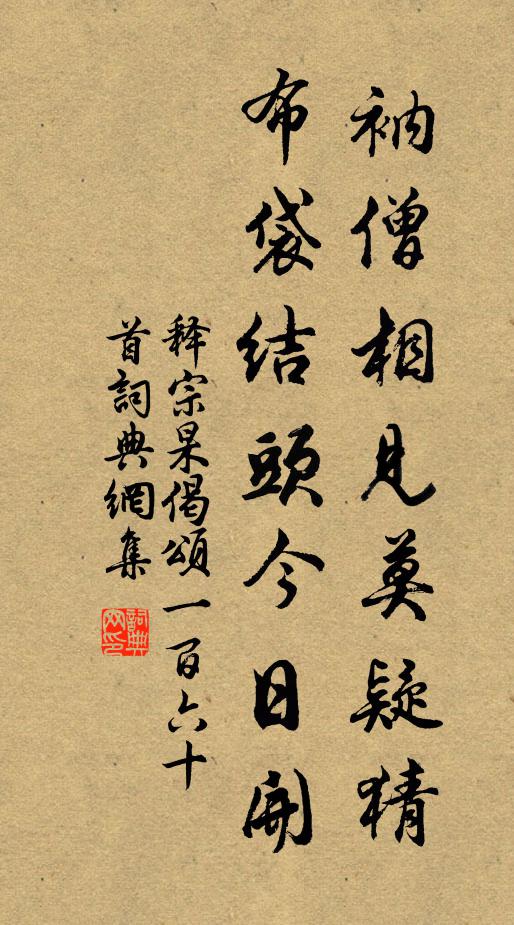 衲僧相見莫疑猜
布袋結頭今日開
释宗杲偈頌一百六十
首詞典網集
詞典
网印